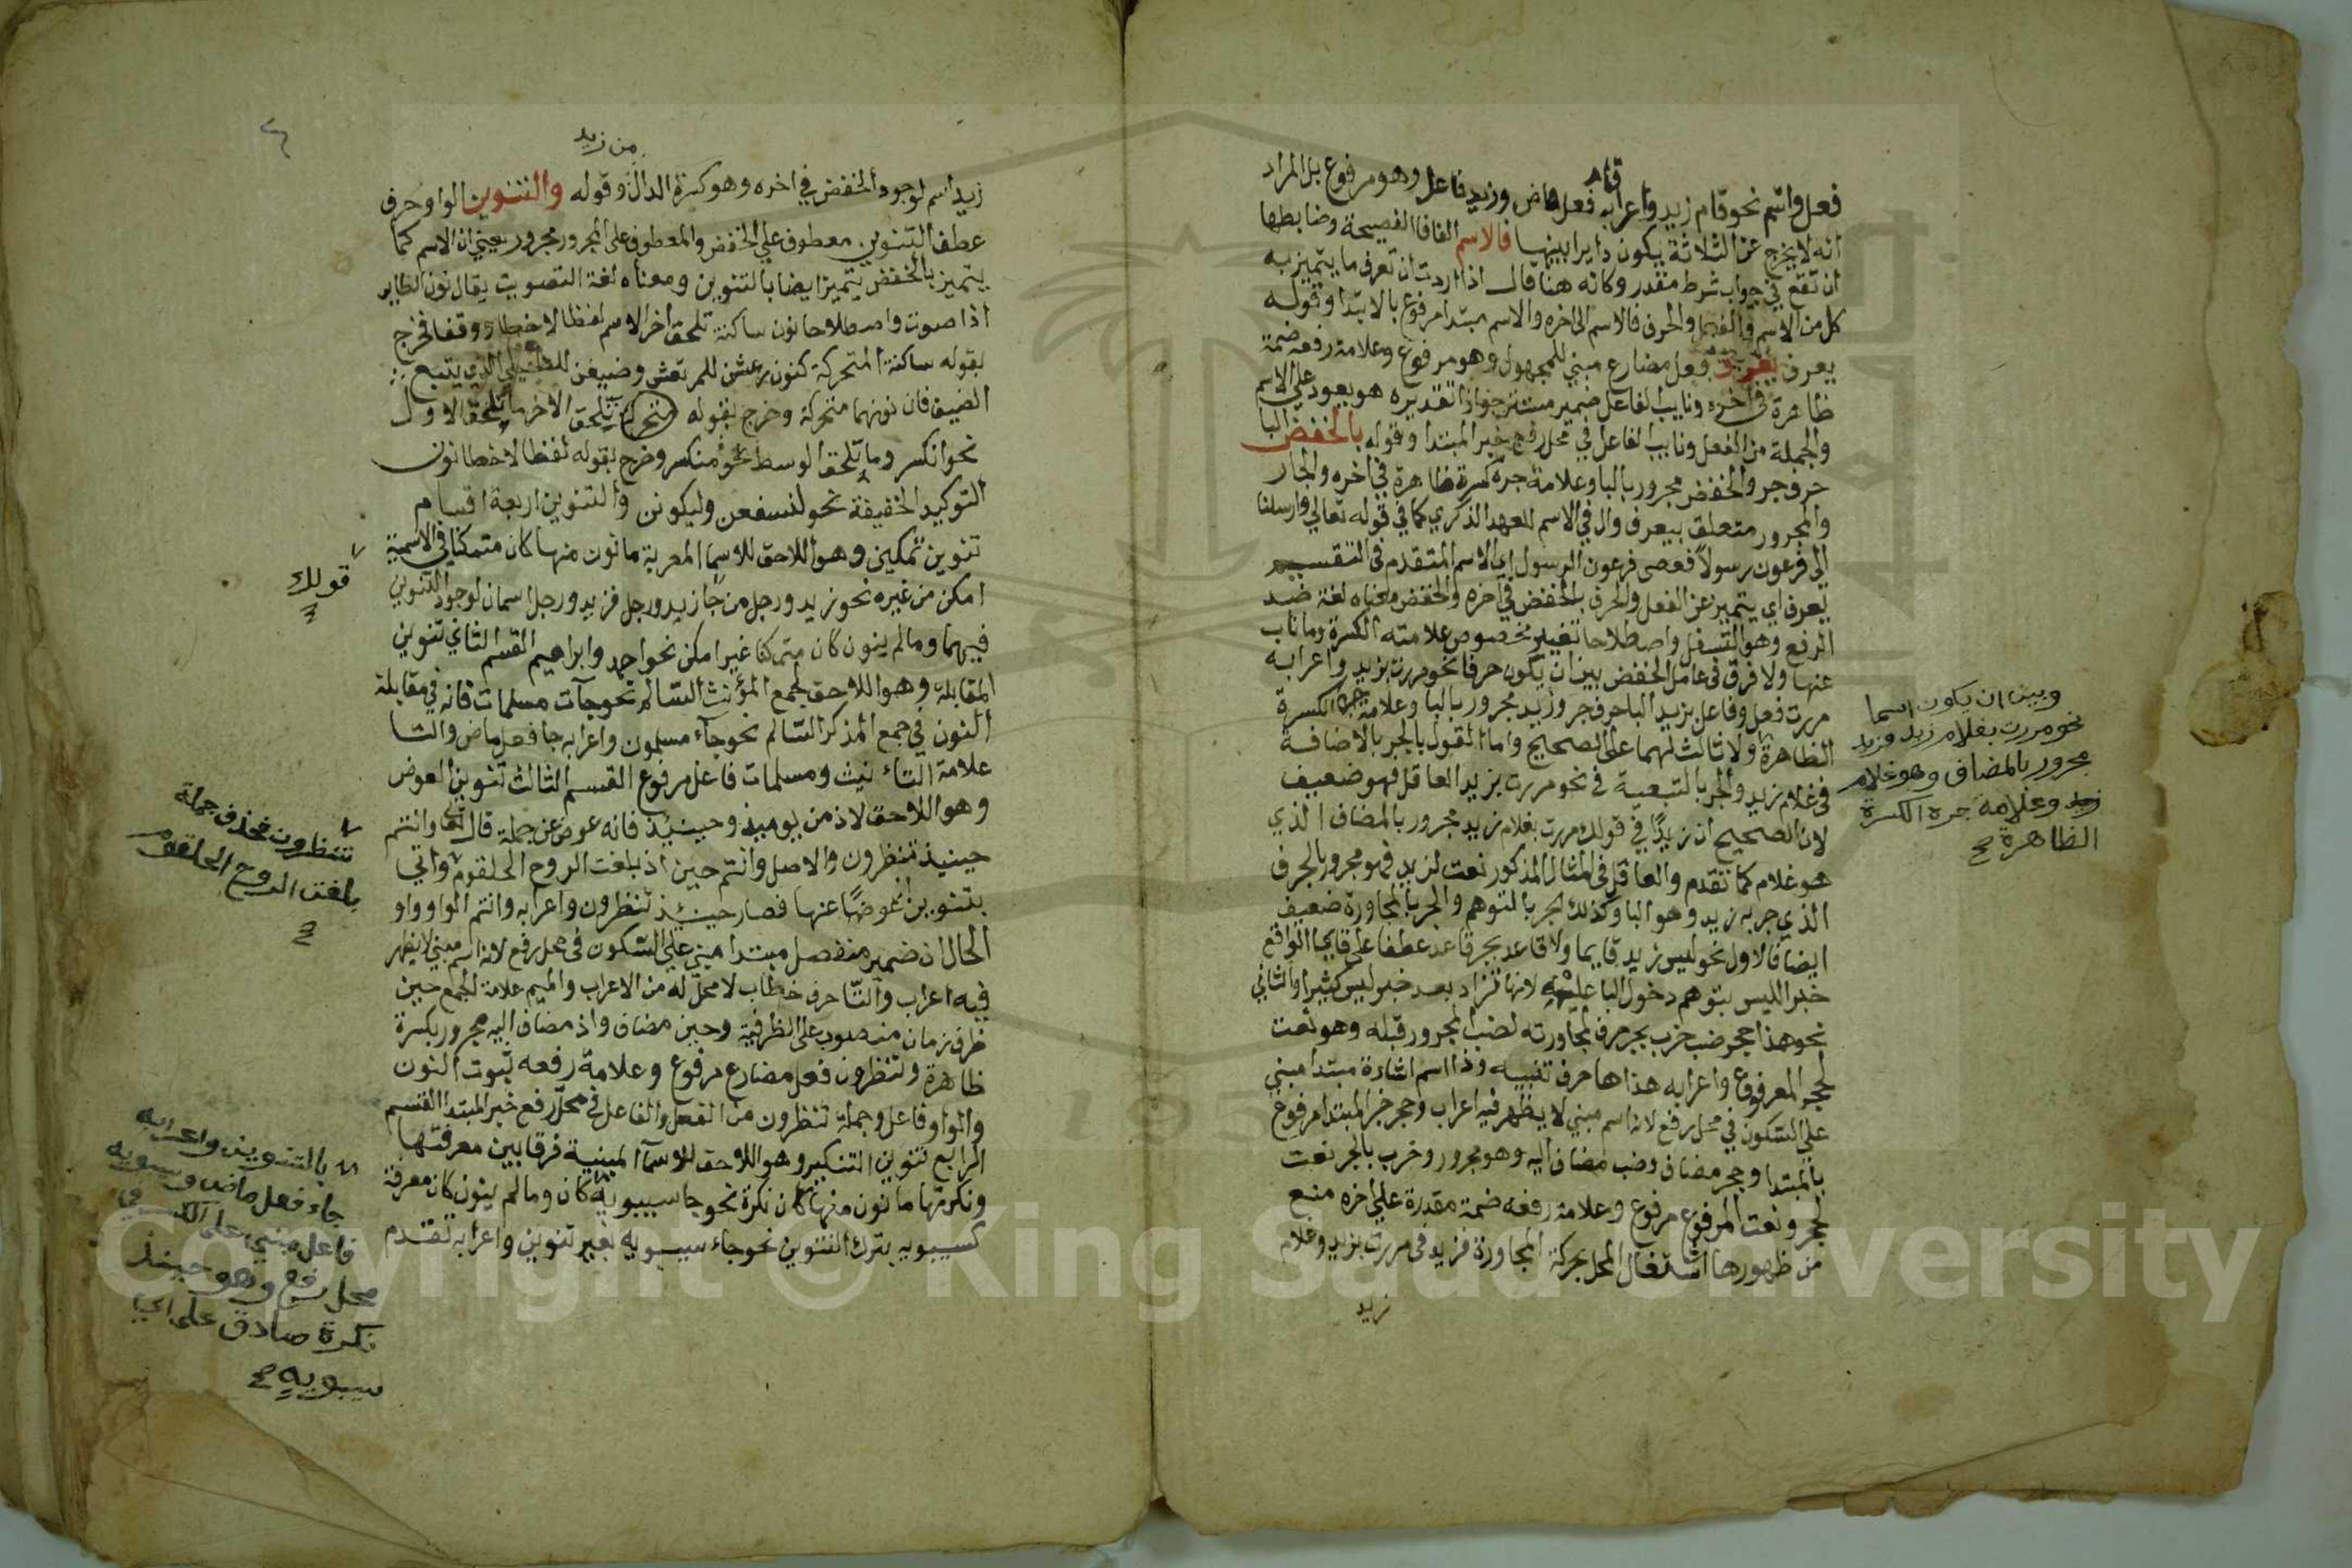 قام
فعل واسم نحو قام زيد واعرابه فعل ماض وزيد فاعل وهو مرفوع بل المراد
انه لا يخرج عن الثلاثة يكون دايرا بينها فالاسم الفا فا الفصيحة وضابطها
ان تقع في جواب شرط مقدر وكانه هنا قال اذا اردت ان تعرف ما يتميز به
كل من الاسم والفعل والحرف فالاسم الى اخره والاسم مبتدا مرفوع بالابتدا وقوله
يعرف فعل مضارع مبني للمجهول وهو مرفوع وعلامة رفعه ضمة
ظاهرة في اخره ونايب الفاعل ضمير مستتر جوازا تقديره هو يعود على الاسم
والجملة من الفعل ونايب الفاعل في محل رفع خبر المبتدا وقوله بالخفض البا
حرف جر والخفض مجرور بالبا وعلامة جره كسرة ظاهرة في اخره والجار
والمجرور متعلق بيعرف وال في الاسم للعهد الذكري كما في قوله تعالي وارسلنا
الى فرعون رسولا فعصى فرعون الرسول اي الاسم المتقدم في التقسيم
يعرف اي يتميز عن الفعل والحرف بالخفض في اخره والخفض معناه لغة ضد
الرفع وهو التسفل واصطلاحا تغيير مخصوص علامته الكسرة وما ناب
عنها ولا فرق في عامل الخفض بين ان يكون حرفا نحو مررت بزيد واعرابه
مررت فعل وفاعل بزيد البا حرف جر وزيد مجرور بالبا وعلامة جره الكسرة
الظاهرة ولا ثالث لهما على الصحيح واما القول بالجر بالاضافة
في غلام زيد والجر بالتبعية في نحو مررت بزيد العاقل فهو ضعيف
لان الصحيح ان زيدًا في قولك مررت بغلام زيد مجرور بالمضاف الذي
هو غلام كما تقدم والعاقل في المثال المذكور نعت لزيد فهو مجرور بالحرف
الذي جر به زيد وهو البا وكذلك الجر بالتوهم والجر بالمجاورة ضعيف
ايضا فالاول نحو ليس زيد قايما ولا قاعد بجر قاعد عطفا على قايما الواقع
خبرا لليس بتوهم دخول البا عليه لانها تزاد بعد خبر ليس كثيرا والثاني
نحو هذا جحر ضب خرب بجر خرب لمجاورته لضب المجرور قبله وهو نعت
لجحر المرفوع واعرابه هذا ها حرف تنبيه وذا اسم اشارة مبتدا مبني
علي السكون في محل رفع لانه اسم مبني لا يظهر فيه اعراب وجحر خبر المبتدا مرفوع
بالمبتدا وجحر مضاف وضب مضاف اليه وهو مجرور وخرب بالجر نعت
لجحر ونعت المرفوع مرفوع وعلامة رفعه ضمة مقدرة على اخره منع
من ظهورها اشتغال المحل بحركة المجاورة فزيد في مررت بزيد وغلام
زيد
وبين ان يكون اسما
نحو مررت بغلام زيد فزيد
مجرور بالمضاف وهو غلام
زيد وعلامة جره الكسرة
الظاهرة صح
من زيد
زيد اسم لوجود الخفض في اخره وهو كسرة الدال وقوله والتنوين الواو حرف
عطف التنوين معطوف علي الخفض والمعطوف على المجرور مجرور يعني ان الاسم كما
يتميز بالخفض يتميز ايضا بالتنوين ومعناه لغة التصويت يقال نون الطاير
اذا صوت واصطلاحا نون ساكنة تلحق اخر الاسم لفظا لا خطا ووقفا فخرج
بقوله ساكنة المتحركة كنون رعشن للمرتعش وضيفن للطفيلي الذي يتبع
الضيف فان نونهما متحركة وخرج بقوله تلحق الاخر ما تلحق الاول
نحو انكسر وما تلحق الوسط نحو منكسر وخرج بقوله لفظا لا خطا نون
التوكيد الخفيفة نحو لنسفعن وليكونن والتنوين اربعة اقسام
تنوين تمكين وهو اللاحق للاسما المعربة ما نون منها كان متمكنا في الاسمية
امكن من غيره نحو زيد ورجل من جا زيد ورجل فزيد ورجل اسمان لوجود التنوين
فيهما وما لم ينون كان متمكنا غير امكن نحو احمد وابراهيم القسم الثاني تنوين
المقابلة وهو اللاحق لجمع المؤنث السالم نحو جآت مسلمات فانه في مقابلة
النون في جمع المذكر السالم نحو جآء مسلمون واعرابه جا فعل ماض والتا
علامة التأنيث ومسلمات فاعل مرفوع القسم الثالث تنوين العوض
وهو اللاحق لاذ من يوميذ وحينيذ فانه عوض عن جملة قال تعا وانتم
حينيذ تنظرون والاصل وانتم حين اذ بلغت الروح الحلقوم واتي
بتنوين عوضًا عنها فصار حينئذ تنظرون واعرابه وانتم الواو واو
الحال ان ضمير منفصل مبتدا مبني علي السكون في محل رفع لانه اسم مبني لا يظهر
فيه اعراب والتا حرف خطاب لا محل له من الاعراب والميم علامة الجمع حين
ظرف زمان منصوب على الظرفية وحين مضاف واذ مضاف اليه مجرور بكسرة
ظاهرة وتنظرون فعل مضارع مرفوع وعلامة رفعه ثبوت النون
والواو فاعل وجملة تنظرون من الفعل والفاعل في محل رفع خبر المبتدا القسم
الرابع تنوين التنكير وهو اللاحق للاسمآ المبنية فرقا بين معرفتها
ونكرتها ما نون منها كان نكرة نحو جا سيبويه كان وما لم ينون كان معرفة
كسيبويه بترك التنوين نحو جاء سيبويه بغير تنوين واعرابه تقدم
قولك
تنظرون فحذف جملة
بلغت الروح الحلقوم
بالتنوين واعرابه
جاء فعل ماض وسيبويه
فاعل مبني على الكسر في
محل رفع وهو حينئذ
نكرة صادق على اي
سيبويه صح
Copyright © King Saud University